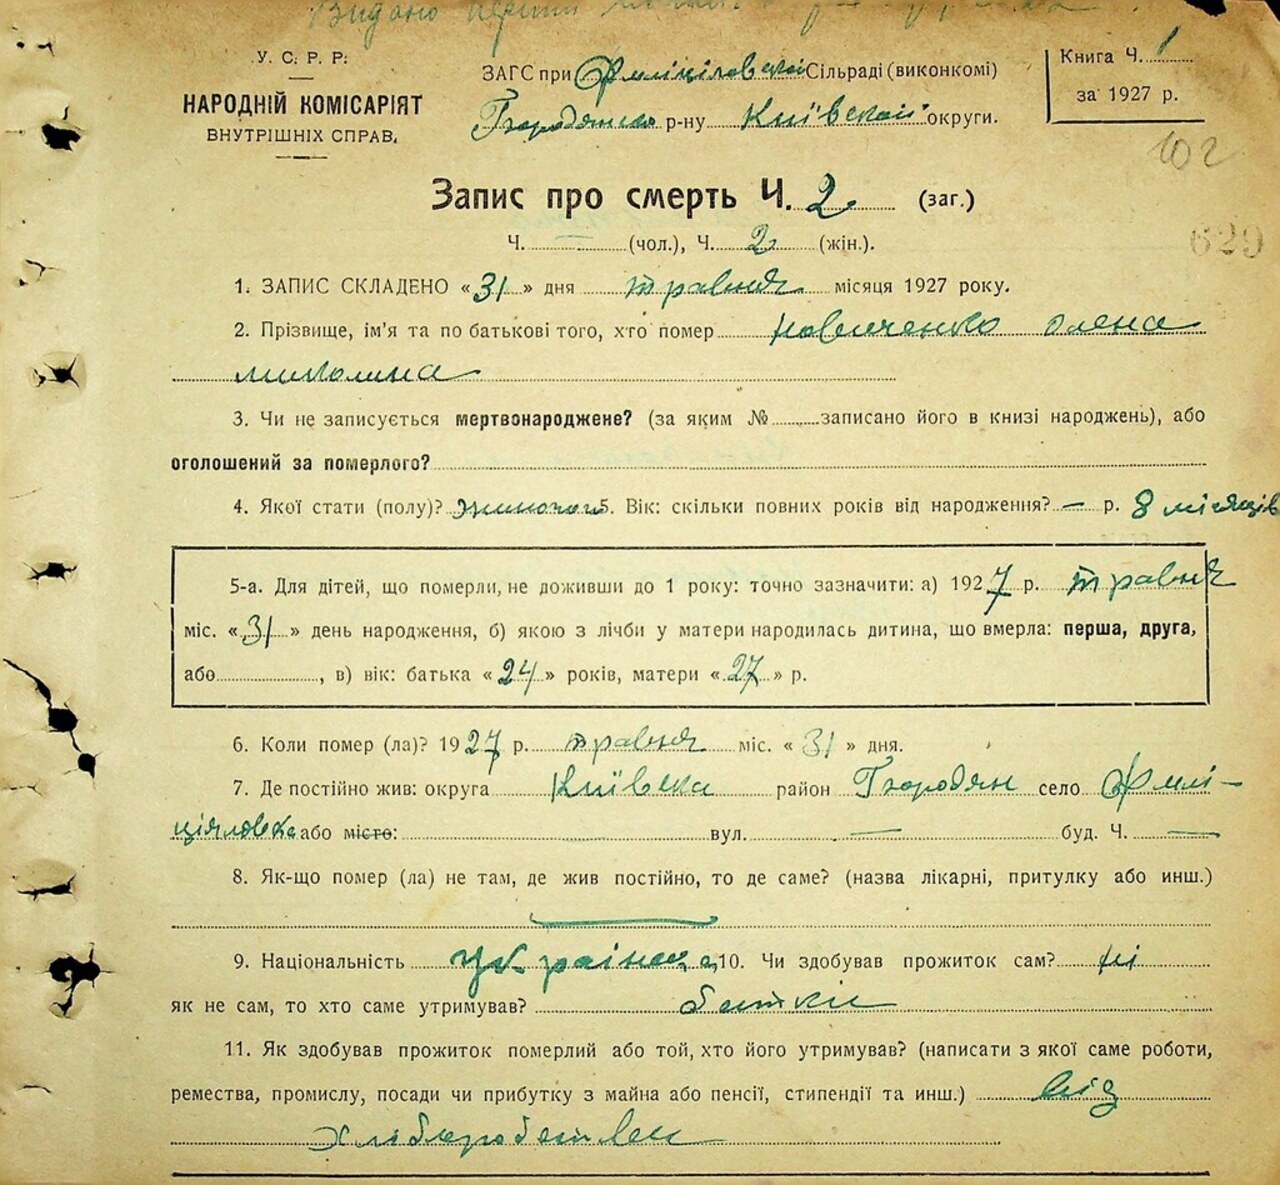 Видано
У. С. Р. Р.
НАРОДНІЙ КОМІСАРІЯТ
ВНУТРІШНІХ СПРАВ.
ЗАГС при Сільраді (виконкомі)
р-ну Київської округи.
Книга Ч. 1
за 1927 р.
102
629
Запис про смерть Ч. 2 (заг.)
Ч. — (чол.), Ч. 2 (жін.).
1. ЗАПИС СКЛАДЕНО «31» дня травня місяця 1927 року.
2. Прізвище, ім'я та по батькові того, хто помер Олена
3. Чи не записується мертвонароджене? (за яким № записано його в книзі народжень), або
оголошений за померлого?
4. Якої стати (полу)? 5. Вік: скільки повних років від народження? — р. 8 місяців
5-а. Для дітей, що померли, не доживши до 1 року: точно зазначити: а) 1927 р. травня
міс. «31» день народження, б) якою з лічби у матери народилась дитина, що вмерла: перша, друга,
або , в) вік: батька «24» років, матери «27» р.
6. Коли помер (ла)? 1927 р. травня міс. «31» дня.
7. Де постійно жив: округа Київска район Городян село
або місто: вул. — буд. Ч. —
8. Як-що помер (ла) не там, де жив постійно, то де саме? (назва лікарні, притулку або инш.)
9. Національність українка 10. Чи здобував прожиток сам? ні
як не сам, то хто саме утримував? батьки
11. Як здобував прожиток померлий або той, хто його утримував? (написати з якої саме роботи,
ремества, промислу, посади чи прибутку з майна або пенсії, стипендії та инш.) від